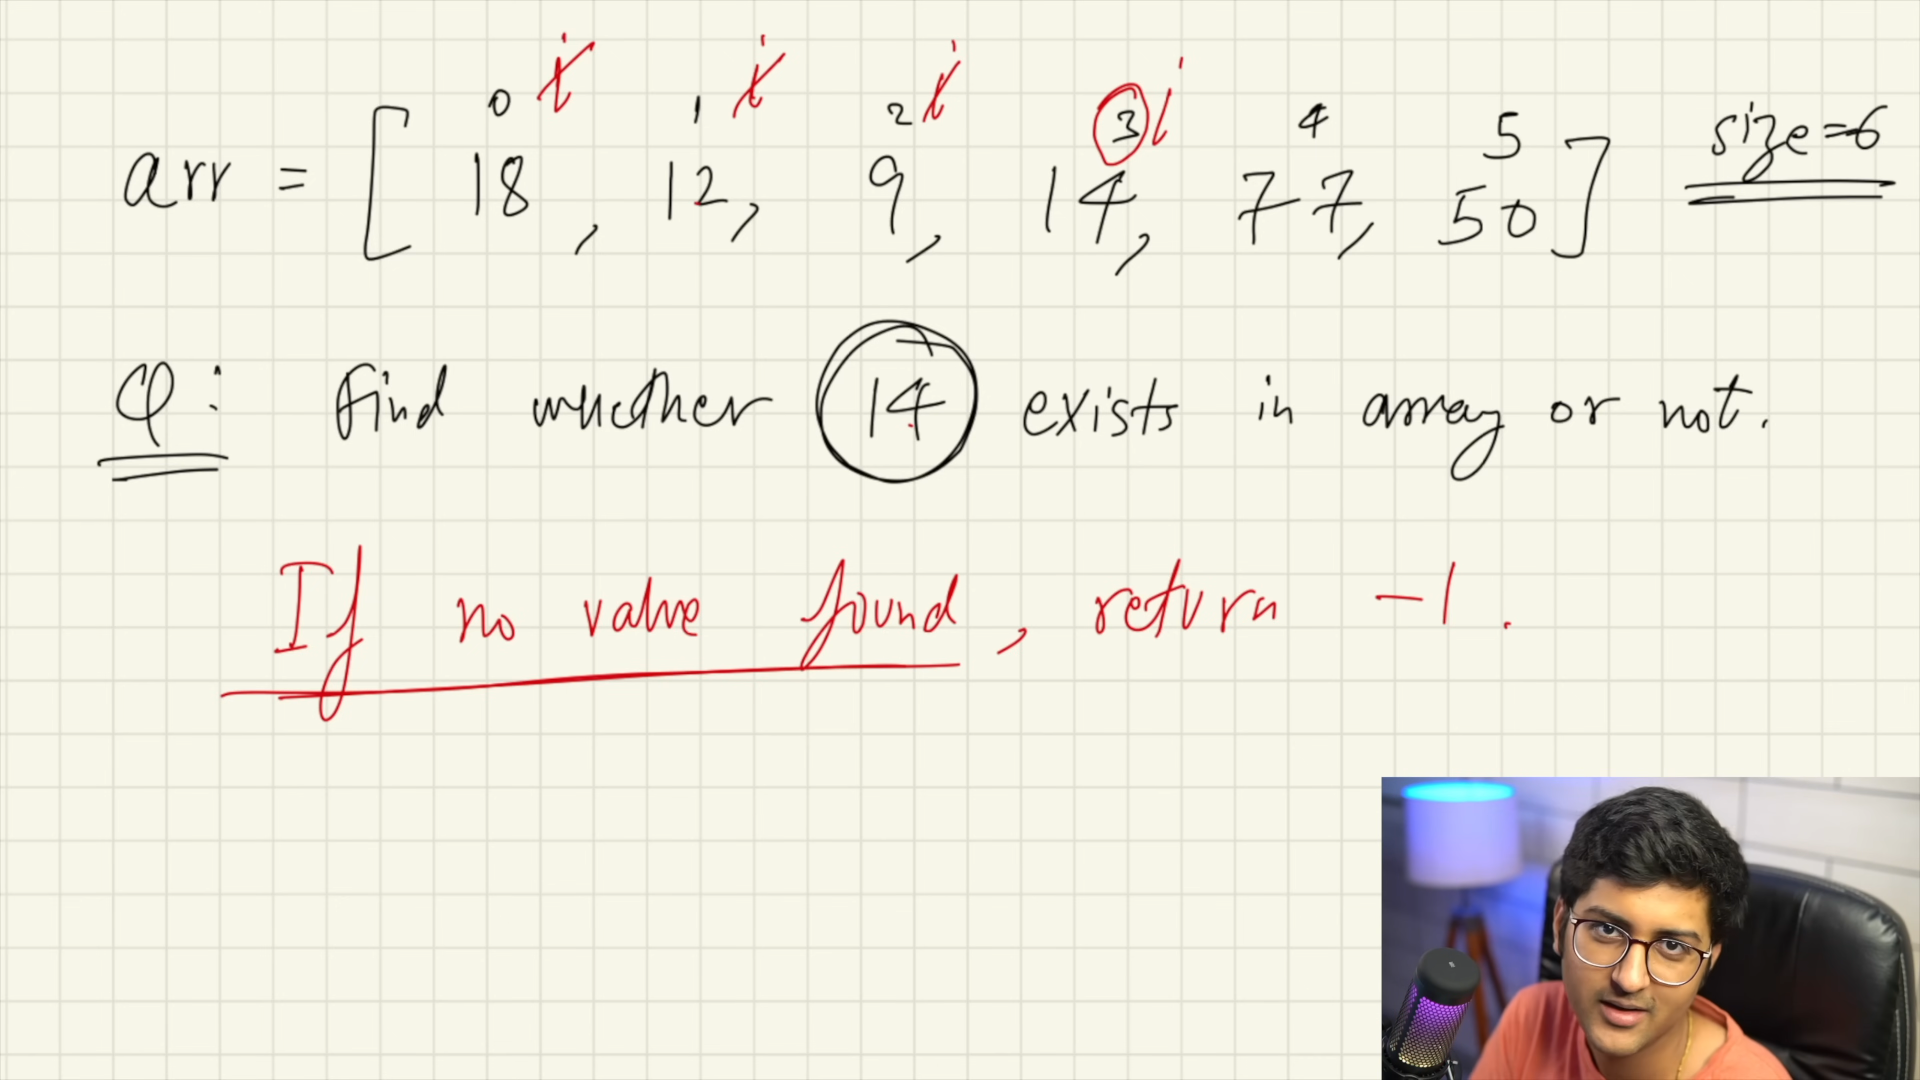 0 i 1 i 2 i 3 i 4 5
arr = [ 18, 12, 9, 14, 77, 50 ] size=6
Q: Find whether 14 exists in array or not.
If no value found, return -1.